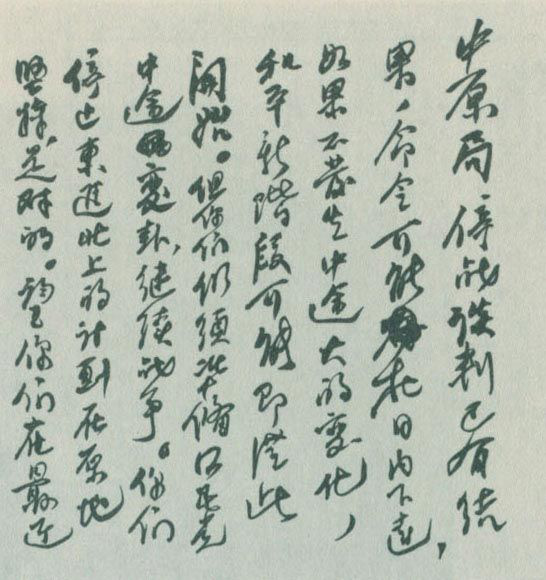 中原局停战谈判已有结
果，命令可能在日内下达，
如果不发生中途大的变化，
和平新阶段可能即从此
开始。但你们仍须准备国民党
中途变卦，继续战争。你们
停止东进北上的计划在原地
坚持，是对的。望你们在最近